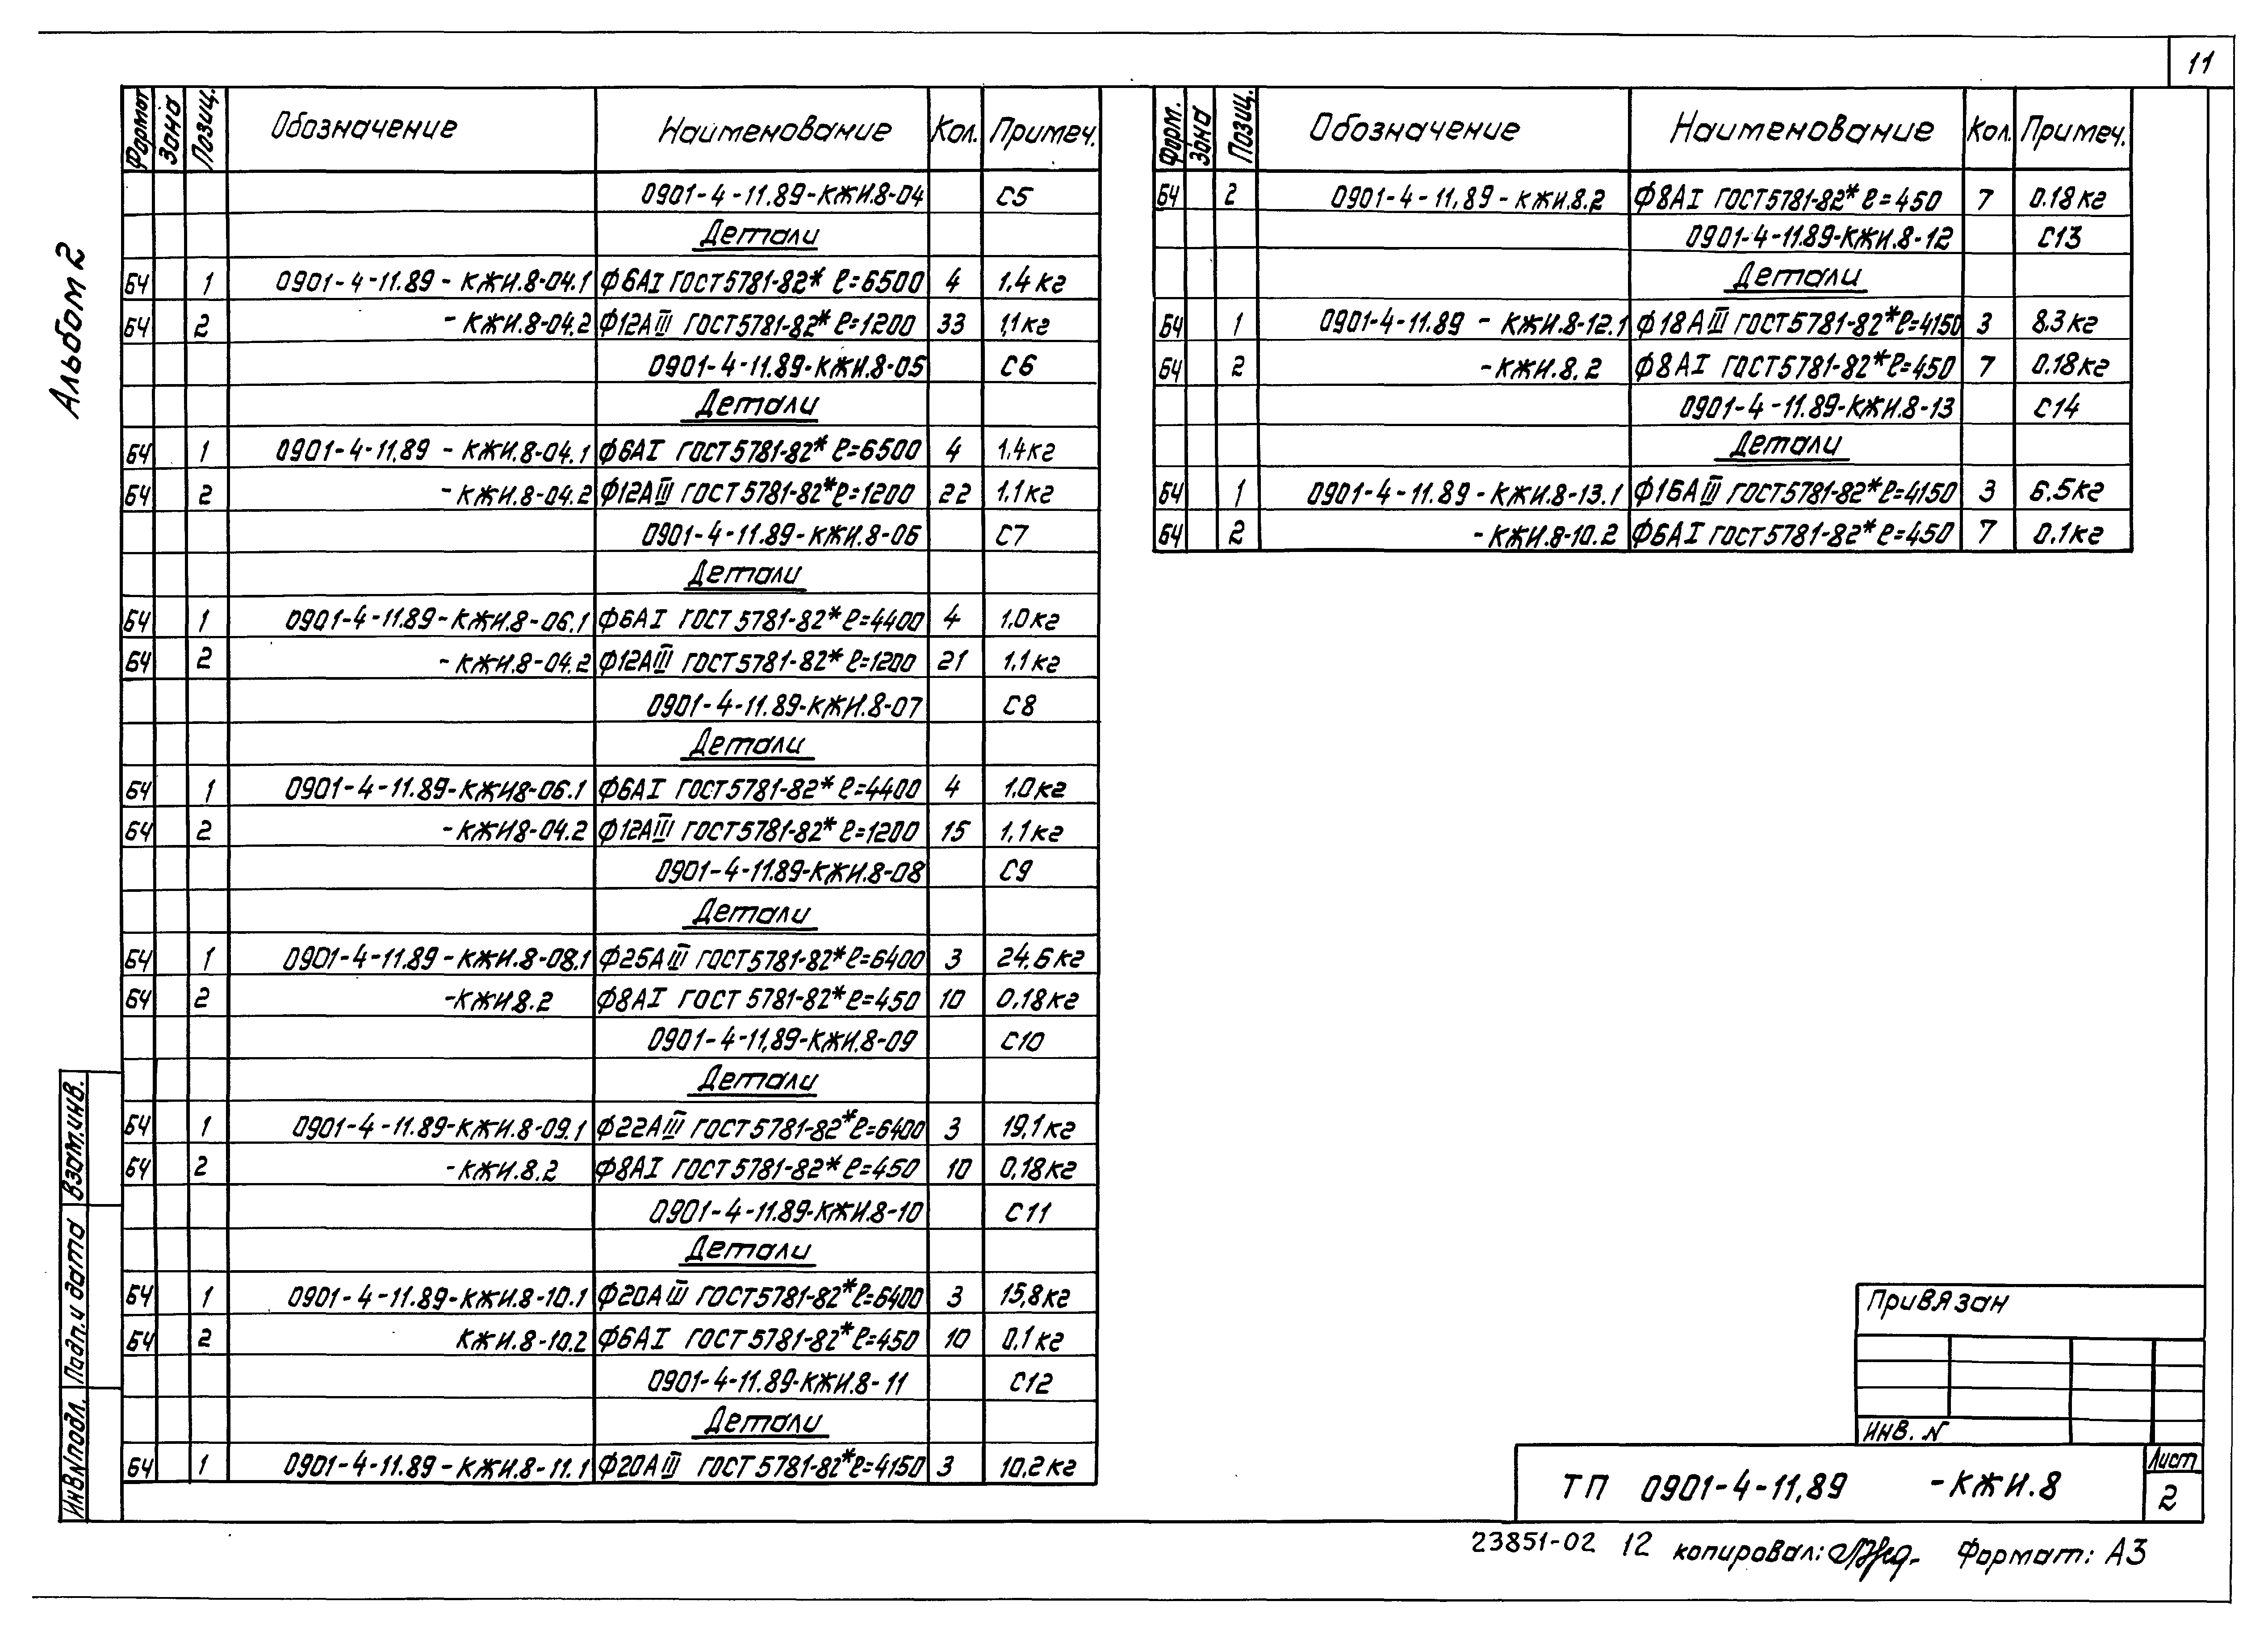 11
Альбом 2
Формат Зона Позиц. Обозначение Наименование Кол. Примеч.
0901-4-11.89-КЖИ.8-04 С5
Детали
БЧ 1 0901-4-11.89-КЖИ.8-04.1 Ф6АI ГОСТ5781-82* ℓ=6500 4 1,4кг
БЧ 2 -КЖИ.8-04.2 Ф12АIII ГОСТ5781-82* ℓ=1200 33 1,1кг
0901-4-11.89-КЖИ.8-05 С6
Детали
БЧ 1 0901-4-11.89-КЖИ.8-04.1 Ф6АI ГОСТ5781-82* ℓ=6500 4 1,4кг
БЧ 2 -КЖИ.8-04.2 Ф12АIII ГОСТ5781-82* ℓ=1200 22 1.1кг
0901-4-11.89-КЖИ.8-06 С7
Детали
БЧ 1 0901-4-11.89-КЖИ.8-06.1 Ф6АI ГОСТ5781-82* ℓ=4400 4 1,0кг
БЧ 2 -КЖИ.8-04.2 Ф12АIII ГОСТ5781-82* ℓ=1200 21 1.1кг
0901-4-11.89-КЖИ.8-07 С8
Детали
БЧ 1 0901-4-11.89-КЖИ8-06.1 Ф6АI ГОСТ5781-82* ℓ=4400 4 1,0кг
БЧ 2 -КЖИ8-04.2 Ф12АIII ГОСТ5781-82* ℓ=1200 15 1,1кг
0901-4-11.89-КЖИ.8-08 С9
Детали
БЧ 1 0901-4-11.89-КЖИ.8-08.1 Ф25АIII ГОСТ5781-82* ℓ=6400 3 24,6кг
БЧ 2 -КЖИ8.2 Ф8АI ГОСТ 5781-82* ℓ=450 10 0,18кг
0901-4-11,89-КЖИ.8-09 С10
Детали
БЧ 1 0901-4-11.89-КЖИ.8-09.1 Ф22АIII ГОСТ5781-82* ℓ=6400 3 19,1кг
БЧ 2 -КЖИ.8.2 Ф8АI ГОСТ5781-82* ℓ=450 10 0,18кг
0901-4-11.89-КЖИ.8-10 С11
Детали
БЧ 1 0901-4-11.89-КЖИ.8-10.1 Ф20АIII ГОСТ5781-82* ℓ=6400 3 15,8кг
БЧ 2 КЖИ.8-10.2 Ф6АI ГОСТ5781-82* ℓ=450 10 0,1кг
0901-4-11.89-КЖИ.8-11 С12
Детали
БЧ 1 0901-4-11.89-КЖИ.8-11.1 Ф20АIII ГОСТ5781-82* ℓ=4150 3 10,2кг
Форм. Зона Позиц. Обозначение Наименование Кол. Примеч.
БЧ 2 0901-4-11,89-КЖИ.8.2 Ф8АI ГОСТ5781-82* ℓ=450 7 0.18кг
0901-4-11.89-КЖИ.8-12 С13
Детали
БЧ 1 0901-4-11.89-КЖИ.8-12.1 Ф18АIII ГОСТ5781-82* ℓ=4150 3 8.3кг
БЧ 2 -КЖИ.8.2 Ф8АI ГОСТ5781-82* ℓ=450 7 0.18кг
0901-4-11.89-КЖИ.8-13 С14
Детали
БЧ 1 0901-4-11.89-КЖИ.8-13.1 Ф16АIII ГОСТ5781-82* ℓ=4150 3 6.5кг
БЧ 2 -КЖИ.8-10.2 Ф6АI ГОСТ5781-82* ℓ=450 7 0.1кг
Взам.инв.
Подп.и дата
Инв.N подл.
Привязан
Инв. N
ТП 0901-4-11,89 -КЖИ.8
Лист
2
23851-02 12 копировал: Формат: А3